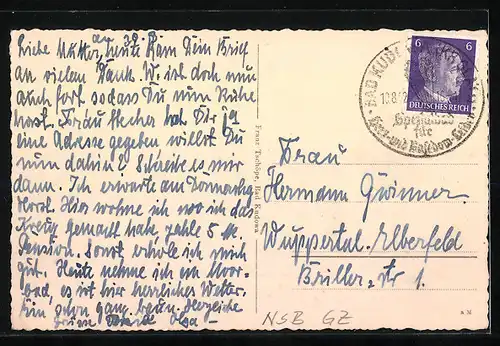 Liebe Mutter, heute kam Dein Brief
an vielen Dank. W. ist doch nun
auch fort sodass Du nun Ruhe
hast. Frau Hecker hat Dir ja
eine Adresse gegeben willst Du
nun dahin? Schreibe es mir
dann. Ich erwarte am Donnerstag
Horst. Hier wohne ich wo ich das
Kreuz gemacht habe zahle 5 M.
Pension. Sonst erhole ich mich
gut. Heute nehme ich ein Moor-
bad, es ist hier herrliches Wetter.
Bin schon ganz braun. Herzliche
Olga
Franz Tschöpe, Bad Kudowa
BAD KUDOWA
Herz- und
für
6 6
DEUTSCHES REICH
Frau
Hermann Gwinner
Wuppertal-Elberfeld
Briller-str 1.
NSB GZ